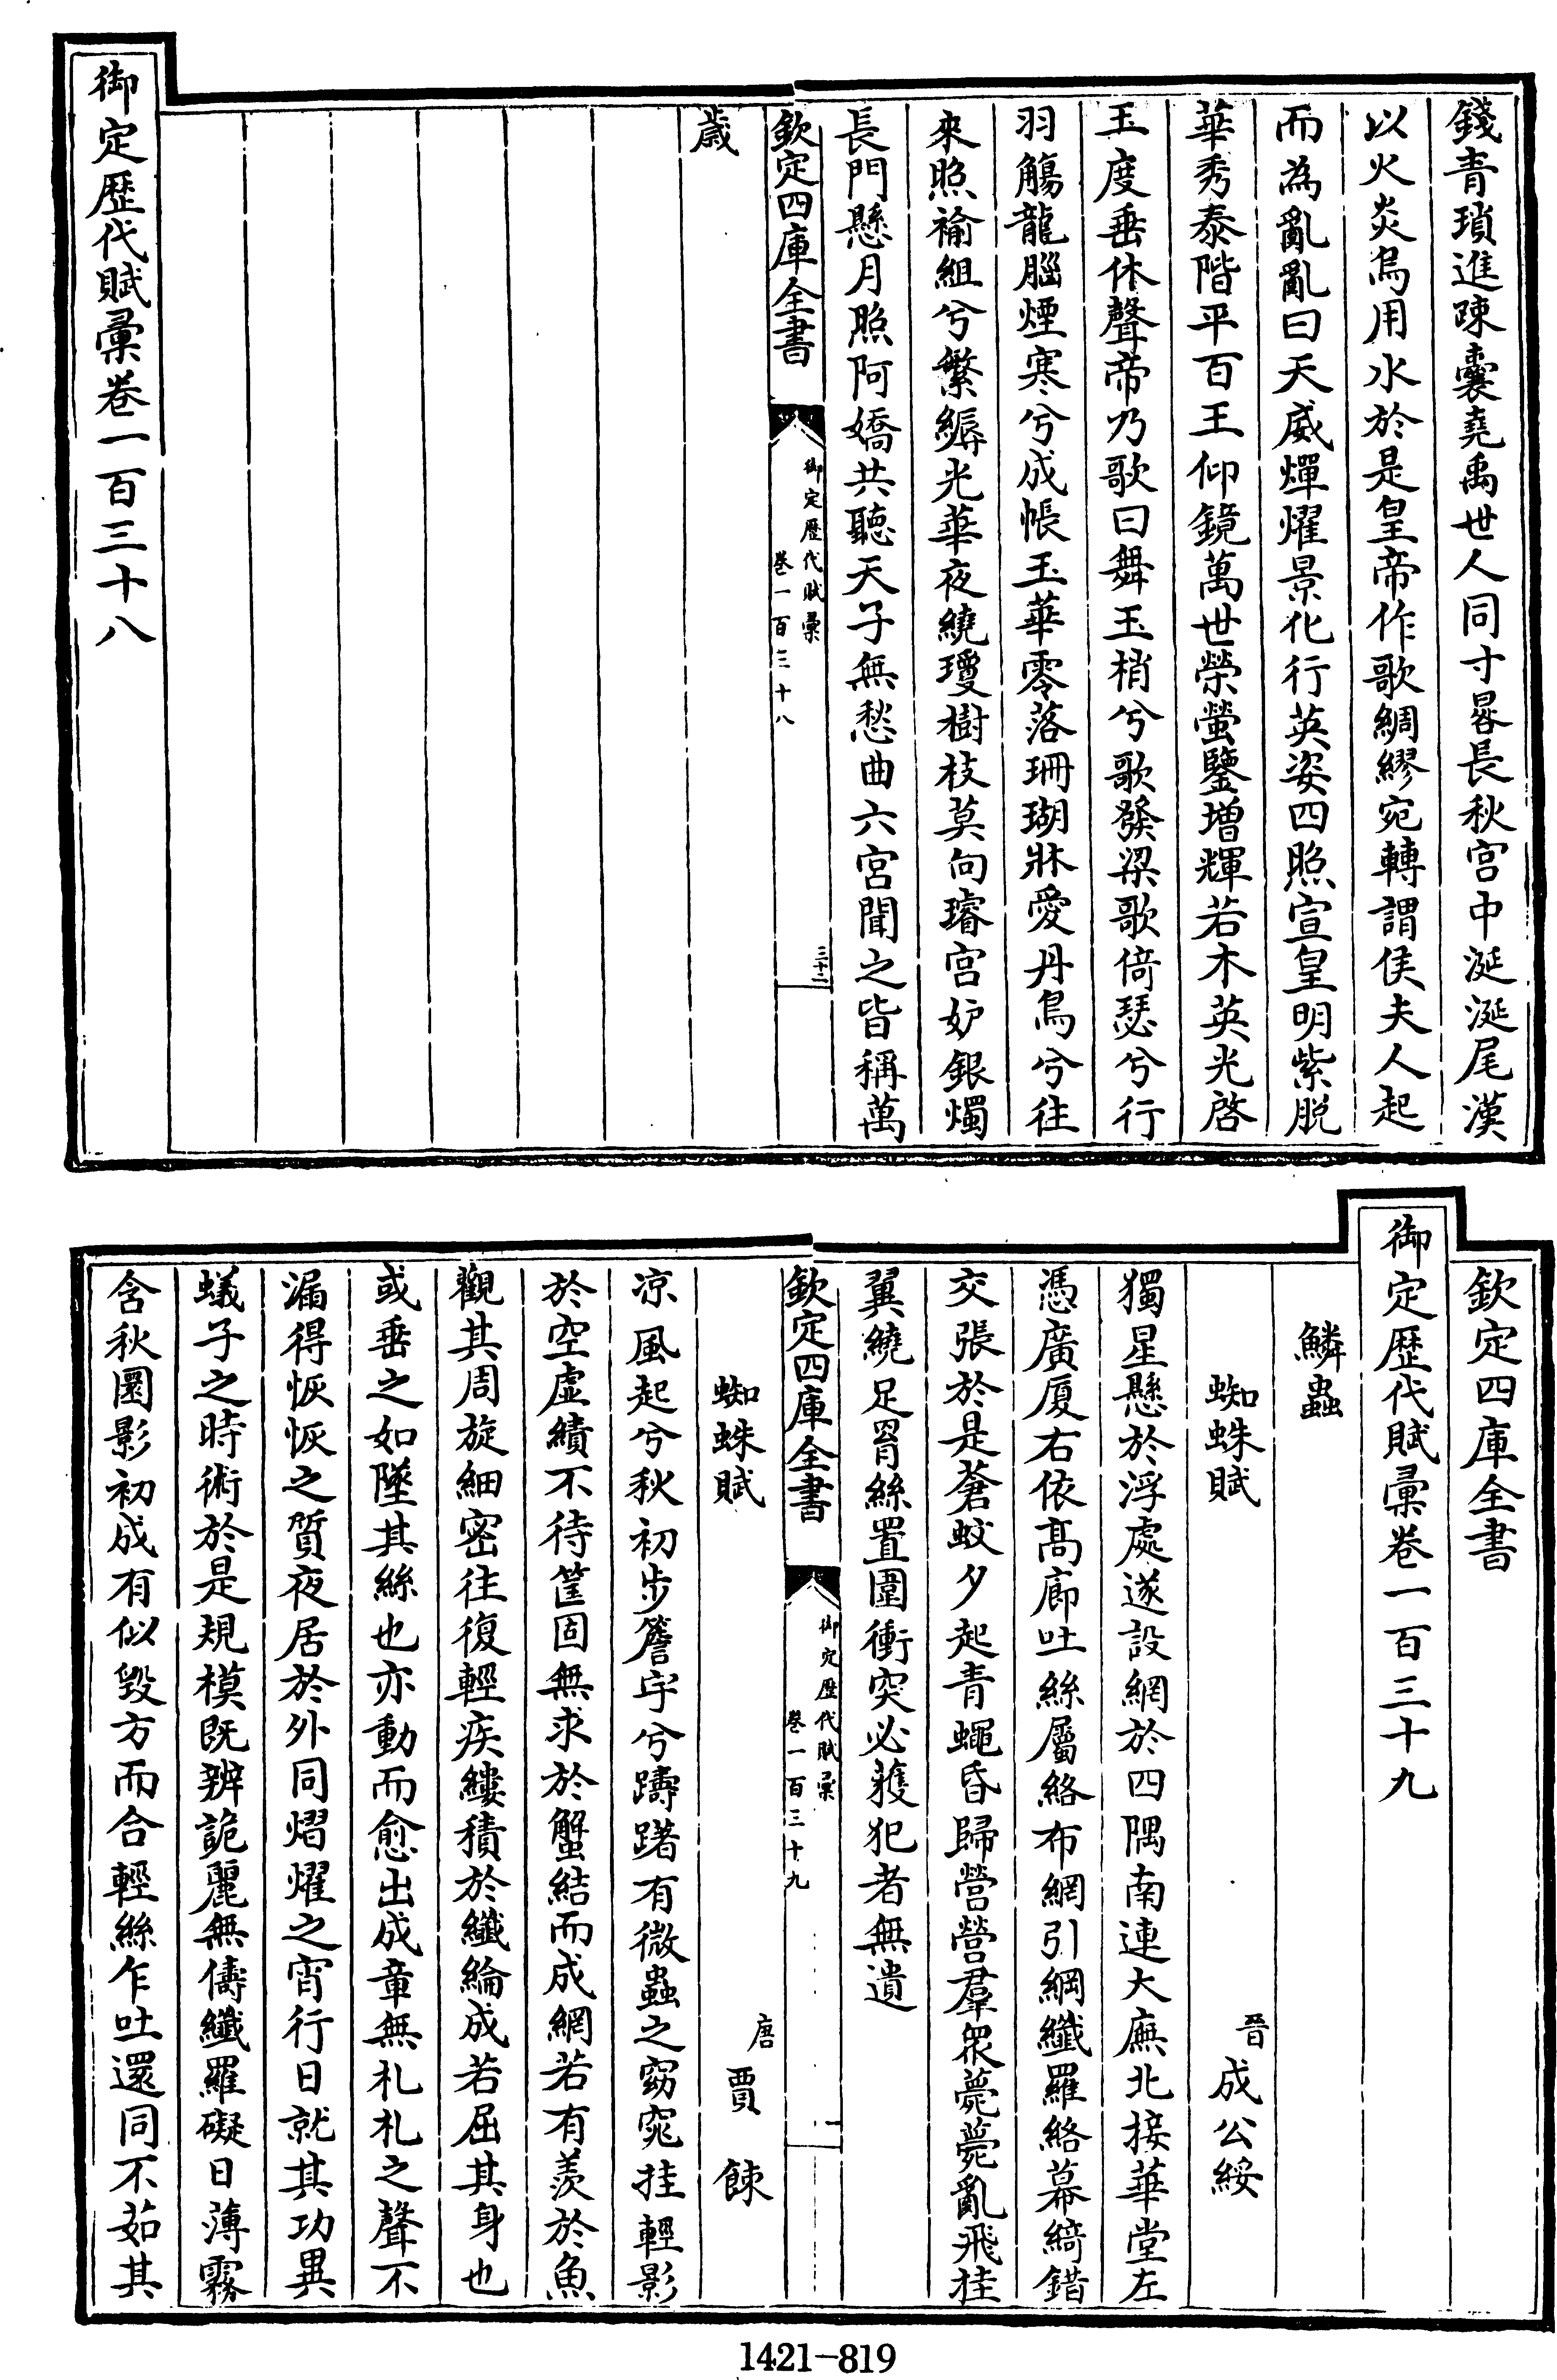 錢青瑣進踈囊堯禹世人同寸晷長秋宫中涎涎尾漢
以火炎烏用水於是皇帝作歌綢繆宛轉謂侯夫人起
而為亂亂曰天威燀燿景化行英姿四照宣皇明紫脱
華秀泰階平百王仰鏡萬世榮螢鑒增輝若木英光啓
玉度垂休聲帝乃歌曰舞玉梢兮歌發梁歌倚瑟兮行
羽觴龍腦煙寒兮成帳玉華零落珊瑚牀愛丹鳥兮往
來照褕組兮繁縟光華夜繞瓊樹枝莫向璿宫妒銀燭
長門懸月照阿嬌共聽天子無愁曲六宫聞之皆稱萬
欽定四庫全書
御定歷代賦彙
卷一百三十八
三十二
歲
御定歷代賦彙卷一百三十八
欽定四庫全書
御定歷代賦彙卷一百三十九
鱗蟲
蜘蛛賦
晉
成公綏
獨星懸於浮處遂設網於四隅南連大廡北接華堂左
憑廣厦右依高廊吐絲屬絡布網引綱纖羅絡幕綺錯
交張於是蒼蚊夕起青蠅昏歸營營羣衆薨薨亂飛挂
翼繞足罥絲置圍衝突必獲犯者無遺
欽定四庫全書
御定歷代賦彙
卷一百三十九
一
蜘蛛賦
唐
賈餗
凉風起兮秋初步簷宇兮躊躇有微蟲之窈窕挂輕影
於空虚績不待筐固無求於蟹結而成網若有羨於魚
觀其周旋細密往復輕疾縷積於纖綸成若屈其身也
或垂之如墜其絲也亦動而愈出成章無札札之聲不
漏得恢恢之質夜居於外同熠燿之宵行日就其功異
蟻子之時術於是規模既辨詭麗無儔纖羅礙日薄霧
含秋圜影初成有似毀方而合輕絲乍吐還同不茹其
1421-819